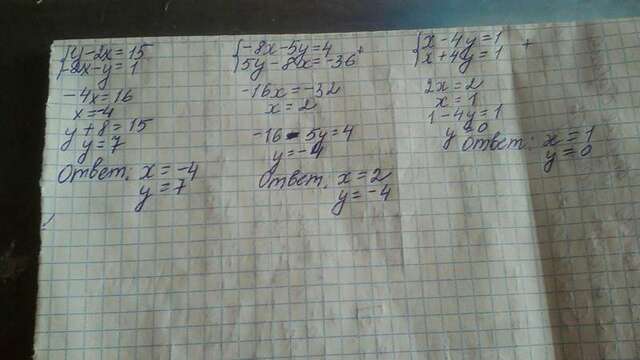 {y - 2x = 15
-2x - y = 1
-4x = 16
x = -4
y + 8 = 15
y = 7
Ответ: x = -4
y = 7
{-8x - 5y = 4
5y - 8x = -36 +
-16x = -32
x = 2
-16 - 5y = 4
y = -4
Ответ: x = 2
y = -4
{x - 4y = 1
x + 4y = 1 +
2x = 2
x = 1
1 - 4y = 1
y = 0
Ответ: x = 1
y = 0